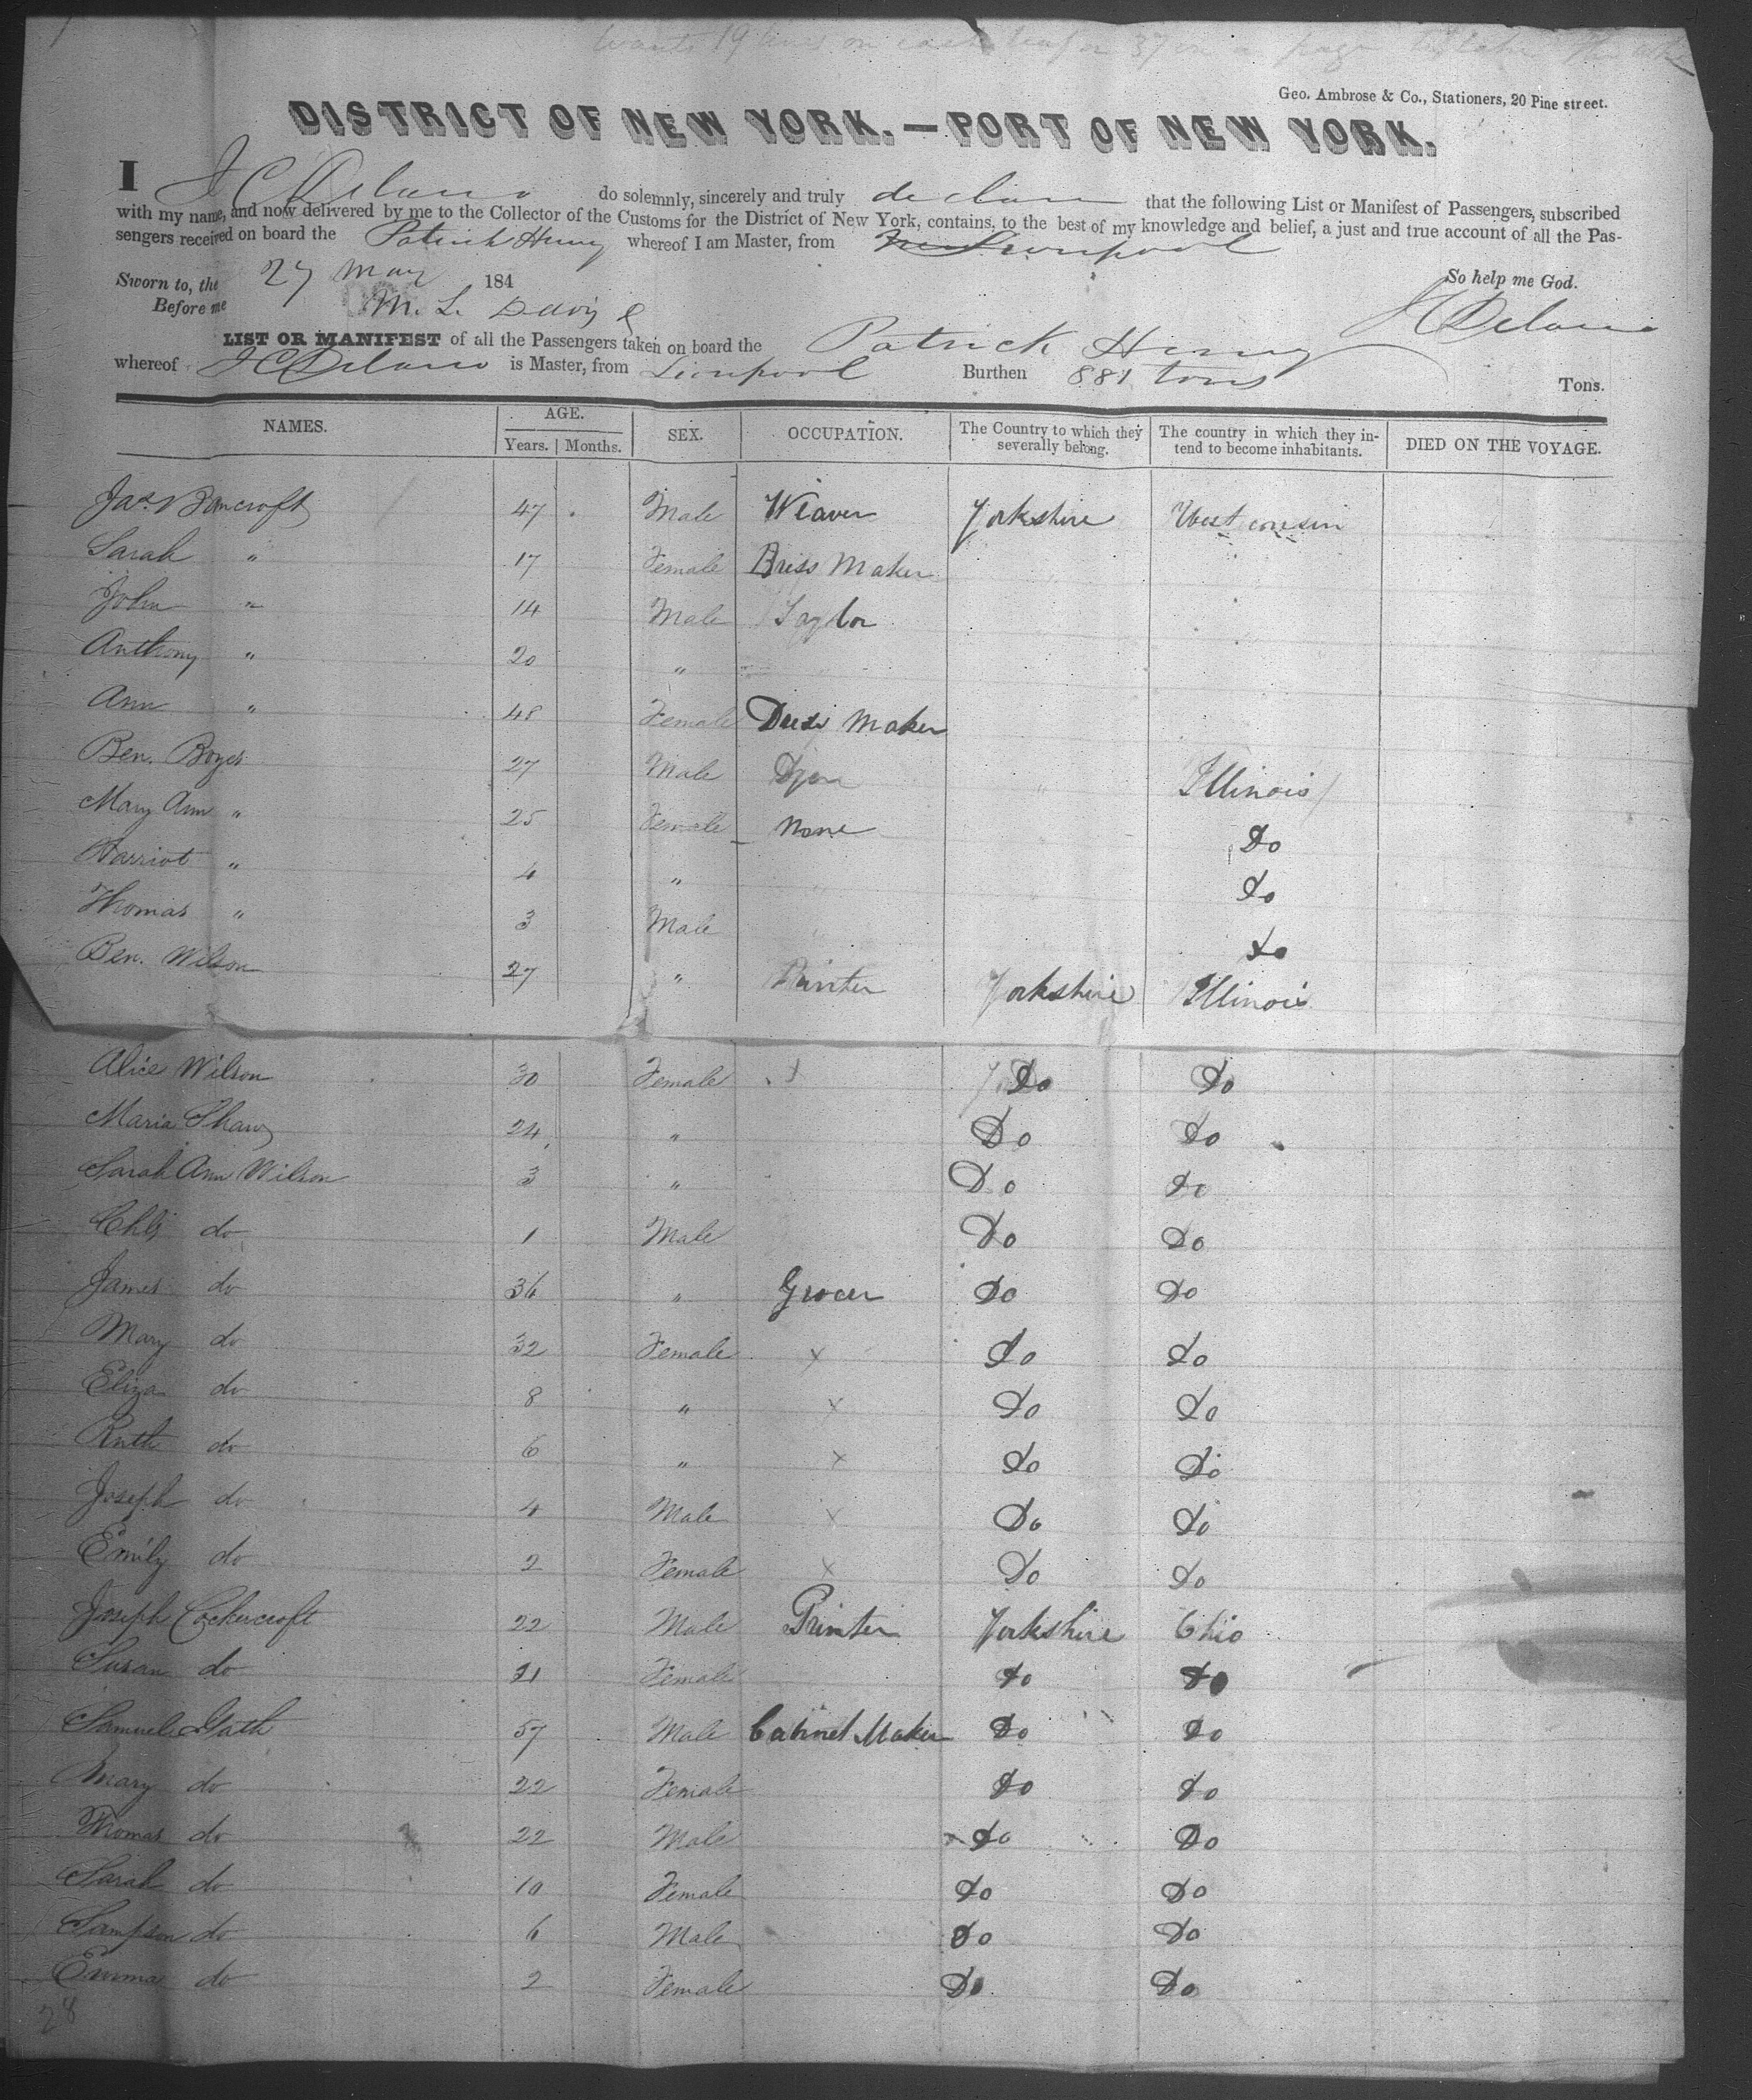 Geo. Ambrose & Co., Stationers, 20 Pine street.
DISTRICT OF NEW YORK.—PORT OF NEW YORK.
I J C Delano do solemnly, sincerely and truly declare that the following List or Manifest of Passengers, subscribed
with my name, and now delivered by me to the Collector of the Customs for the District of New York, contains, to the best of my knowledge and belief, a just and true account of all the Pas-
sengers received on board the Patrick Henry whereof I am Master, from Liverpool
Sworn to, the 27 May 184 So help me God.
Before me M. L. Davis J C Delano
LIST OR MANIFEST of all the Passengers taken on board the Patrick Henry
whereof J C Delano is Master, from Liverpool Burthen 881 tons Tons.
NAMES. AGE. Years. Months. SEX. OCCUPATION. The Country to which they severally belong. The country in which they in-tend to become inhabitants. DIED ON THE VOYAGE.
Jas. Bancroft 47 Male Weaver Yorkshire West consin
Sarah " 17 Female Dress Maker
John " 14 Male Taylor
Anthony " 20 "
Ann " 48 Female Dress Maker
Ben. Boyes 27 Male Dyer " Illinois
Mary Ann " 25 Female None Do
Harriot " 4 " Do
Thomas " 3 Male Do
Ben. Wilson 27 " Printer Yorkshire Illinois
Alice Wilson 30 Female Do Do
Maria Shaw 24 " Do Do
Sarah Ann Wilson 3 " Do Do
Chls do 1 Male Do Do
James do 36 " Grocer Do Do
Mary do 32 Female x Do Do
Eliza do 8 " x Do Do
Ruth do 6 " x Do Do
Joseph do 4 Male x Do Do
Emily do 2 Female x Do Do
Joseph Cockercroft 22 Male Printer Yorkshire Ohio
Susan do 21 Female Do Do
Samuel Gath 57 Male Cabinet Maker Do Do
Mary do 22 Female Do Do
Thomas do 22 Male Do Do
Sarah do 10 Female Do Do
Sampson do 6 Male Do Do
Emma do 2 Female Do Do
28